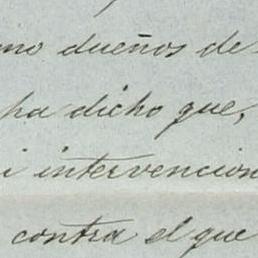 mo dueños de
ha dicho que,
i intervencion
contra el que